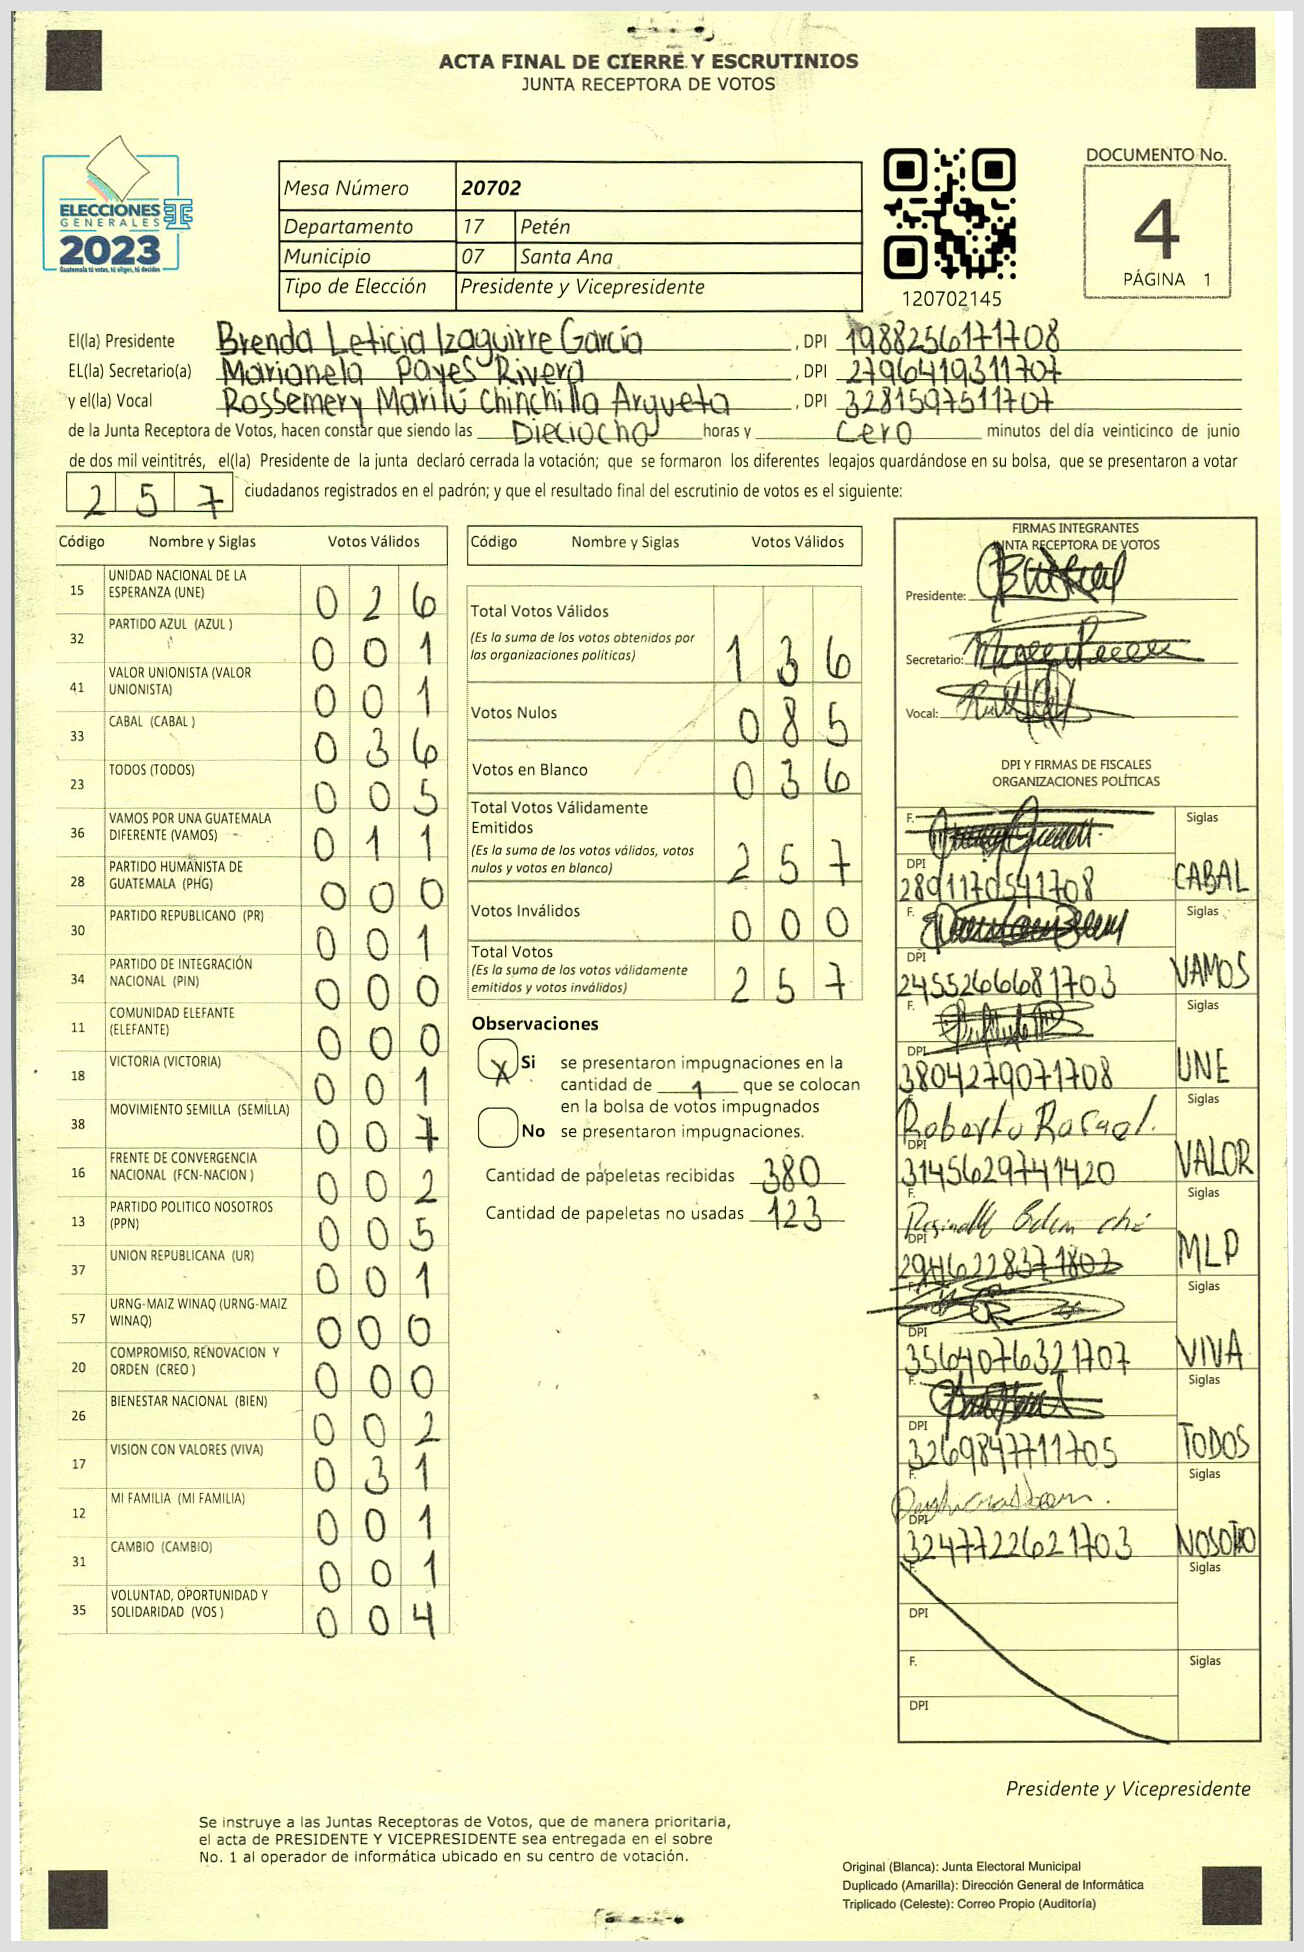 ACTA FINAL DE CIERRE Y ESCRUTINIOS
JUNTA RECEPTORA DE VOTOS
ELECCIONES
GENERALES
2023
Guatemala tú votas, tú eliges, tú decides
Mesa Número 20702
Departamento 17 Petén
Municipio 07 Santa Ana
Tipo de Elección Presidente y Vicepresidente
120702145
DOCUMENTO No.
4
PÁGINA 1
El(la) Presidente Brenda Leticia Izaguirre García , DPI 1988256171708
EL(la) Secretario(a) Marianela Payes Rivera , DPI 2796419311707
y el(la) Vocal Rossemery Marilú Chinchilla Argueta , DPI 3281597511707
de la Junta Receptora de Votos, hacen constar que siendo las Dieciocho horas y cero minutos del día veinticinco de junio
de dos mil veintitrés, el(la) Presidente de la junta declaró cerrada la votación; que se formaron los diferentes legajos guardándose en su bolsa, que se presentaron a votar
257 ciudadanos registrados en el padrón; y que el resultado final del escrutinio de votos es el siguiente:
Código Nombre y Siglas Votos Válidos
15 UNIDAD NACIONAL DE LA ESPERANZA (UNE) 0 2 6
32 PARTIDO AZUL (AZUL ) 0 0 1
41 VALOR UNIONISTA (VALOR UNIONISTA) 0 0 1
33 CABAL (CABAL ) 0 3 6
23 TODOS (TODOS) 0 0 5
36 VAMOS POR UNA GUATEMALA DIFERENTE (VAMOS) 0 1 1
28 PARTIDO HUMANISTA DE GUATEMALA (PHG) 0 0 0
30 PARTIDO REPUBLICANO (PR) 0 0 1
34 PARTIDO DE INTEGRACIÓN NACIONAL (PIN) 0 0 0
11 COMUNIDAD ELEFANTE (ELEFANTE) 0 0 0
18 VICTORIA (VICTORIA) 0 0 1
38 MOVIMIENTO SEMILLA (SEMILLA) 0 0 7
16 FRENTE DE CONVERGENCIA NACIONAL (FCN-NACION ) 0 0 2
13 PARTIDO POLITICO NOSOTROS (PPN) 0 0 5
37 UNION REPUBLICANA (UR) 0 0 1
57 URNG-MAIZ WINAQ (URNG-MAIZ WINAQ) 0 0 0
20 COMPROMISO, RENOVACION Y ORDEN (CREO ) 0 0 0
26 BIENESTAR NACIONAL (BIEN) 0 0 2
17 VISION CON VALORES (VIVA) 0 3 1
12 MI FAMILIA (MI FAMILIA) 0 0 1
31 CAMBIO (CAMBIO) 0 0 1
35 VOLUNTAD, OPORTUNIDAD Y SOLIDARIDAD (VOS ) 0 0 4
Código Nombre y Siglas Votos Válidos
Total Votos Válidos
(Es la suma de los votos obtenidos por
las organizaciones políticas) 1 3 6
Votos Nulos 0 8 5
Votos en Blanco 0 3 6
Total Votos Válidamente
Emitidos
(Es la suma de los votos válidos, votos
nulos y votos en blanco) 2 5 7
Votos Inválidos 0 0 0
Total Votos
(Es la suma de los votos válidamente
emitidos y votos inválidos) 2 5 7
Observaciones
X Si se presentaron impugnaciones en la
cantidad de 1 que se colocan
en la bolsa de votos impugnados
No se presentaron impugnaciones.
Cantidad de papeletas recibidas 380
Cantidad de papeletas no usadas 123
FIRMAS INTEGRANTES
JUNTA RECEPTORA DE VOTOS
Presidente:
Secretario:
Vocal:
DPI Y FIRMAS DE FISCALES
ORGANIZACIONES POLÍTICAS
F. Siglas
DPI 2891170541708 CABAL
F. Siglas
DPI 2455266681703 VAMOS
F. Siglas
DPI 3804279071708 UNE
F. Roberto Rafael. Siglas
DPI 3145629741420 VALOR
F. Siglas
DPI MLP
F. Siglas
DPI 3564076321707 VIVA
F. Siglas
DPI 3269847711705 TODOS
F. Siglas
DPI 3247722621703 NOSOTRO
F. Siglas
DPI
F. Siglas
DPI
Presidente y Vicepresidente
Se instruye a las Juntas Receptoras de Votos, que de manera prioritaria,
el acta de PRESIDENTE Y VICEPRESIDENTE sea entregada en el sobre
No. 1 al operador de informática ubicado en su centro de votación.
Original (Blanca): Junta Electoral Municipal
Duplicado (Amarilla): Dirección General de Informática
Triplicado (Celeste): Correo Propio (Auditoría)